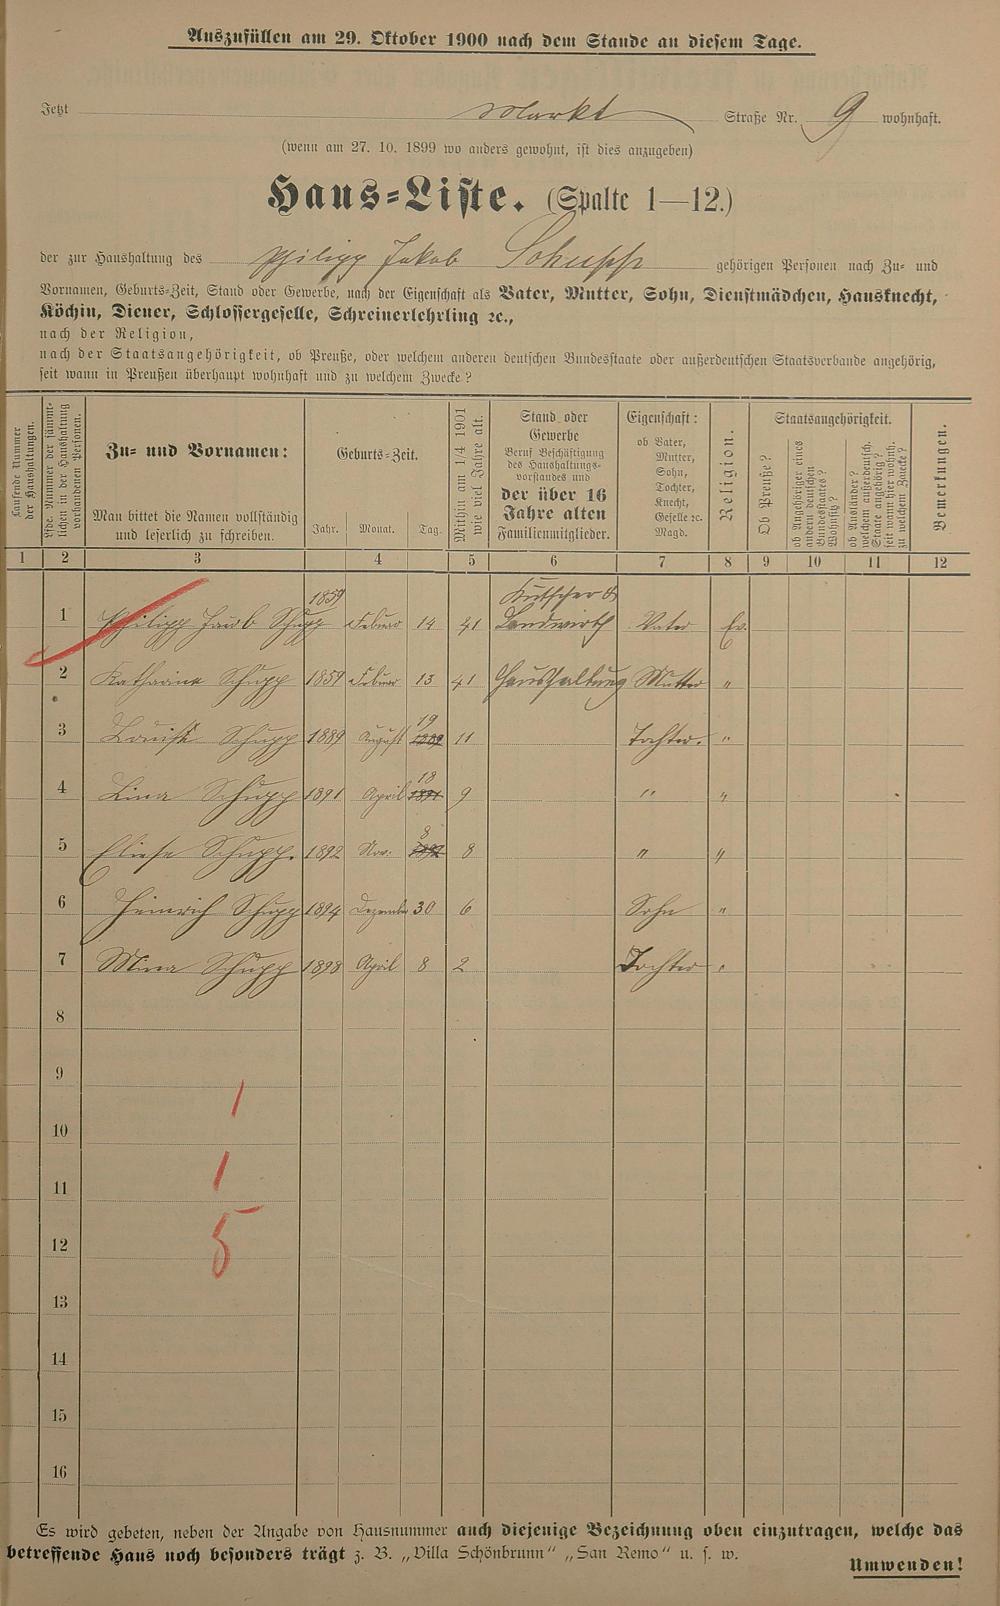 Auszufüllen am 29. Oktober 1900 nach dem Stande an diesem Tage.
Jetzt Markt Straße Nr. 9 wohnhaft.
(wenn am 27. 10. 1899 wo anders gewohnt, ist dies anzugeben)
Haus=Liste. (Spalte 1—12.)
der zur Haushaltung des Philipp Jakob Schupp gehörigen Personen nach Zu= und
Vornamen, Geburts=Zeit, Stand oder Gewerbe, nach der Eigenschaft als Vater, Mutter, Sohn, Dienstmädchen, Hausknecht,
Köchin, Diener, Schlossergeselle, Schreinerlehrling ꝛc.,
nach der Religion,
nach der Staatsangehörigkeit, ob Preuße, oder welchem anderen deutschen Bundesstaate oder außerdeutschen Staatsverbande angehörig,
seit wann in Preußen überhaupt wohnhaft und zu welchem Zwecke?
Laufende Nummer
der Haushaltungen.
Lfde. Nummer der sämmt-
lichen in der Haushaltung
vorhandenen Personen.
Zu= und Vornamen:
Man bittet die Namen vollständig
und leserlich zu schreiben.
Geburts=Zeit.
Jahr. Monat. Tag.
Mithin am 1/4 1901
wie viel Jahre alt.
Stand oder
Gewerbe
Beruf Beschäftigung
des Haushaltungs-
vorstandes und
der über 16
Jahre alten
Familienmitglieder.
Eigenschaft:
ob Vater,
Mutter,
Sohn,
Tochter,
Knecht,
Geselle ꝛc.
Magd.
Religion.
Staatsangehörigkeit.
Ob Preuße?
ob Angehöriger eines
andern deutschen
Bundesstaates?
Wohnsitz?
ob Ausländer?
welchem außerdeutsch.
Staate angehörig?
seit wann hier wohnh.
zu welchem Zwecke?
Bemerkungen.
1 2 3 4 5 6 7 8 9 10 11 12
1 Philipp Jacob Schupp 1859 Februar 14 41 Kutscher & Landwirth Vater Ev.
2 Katharine Schupp 1859 Februar 13 41 Haushaltung Mutter "
3 Louise Schupp 1889 August 19 1889 11 Tochter. "
4 Lina Schupp 1891 April 18 1891 9 " "
5 Eliese Schupp. 1892 Nov. 8 1892 8 " "
6 Heinrich Schupp 1894 Dezember 30 6 Sohn "
7 Mina Schupp 1898 April 8 2 Tochter "
8
9
1
10
11
1
12
5
13
14
15
16
Es wird gebeten, neben der Angabe von Hausnummer auch diejenige Bezeichnung oben einzutragen, welche das
betreffende Haus noch besonders trägt z. B. „Villa Schönbrunn" „San Remo" u. s. w.
Umwenden!